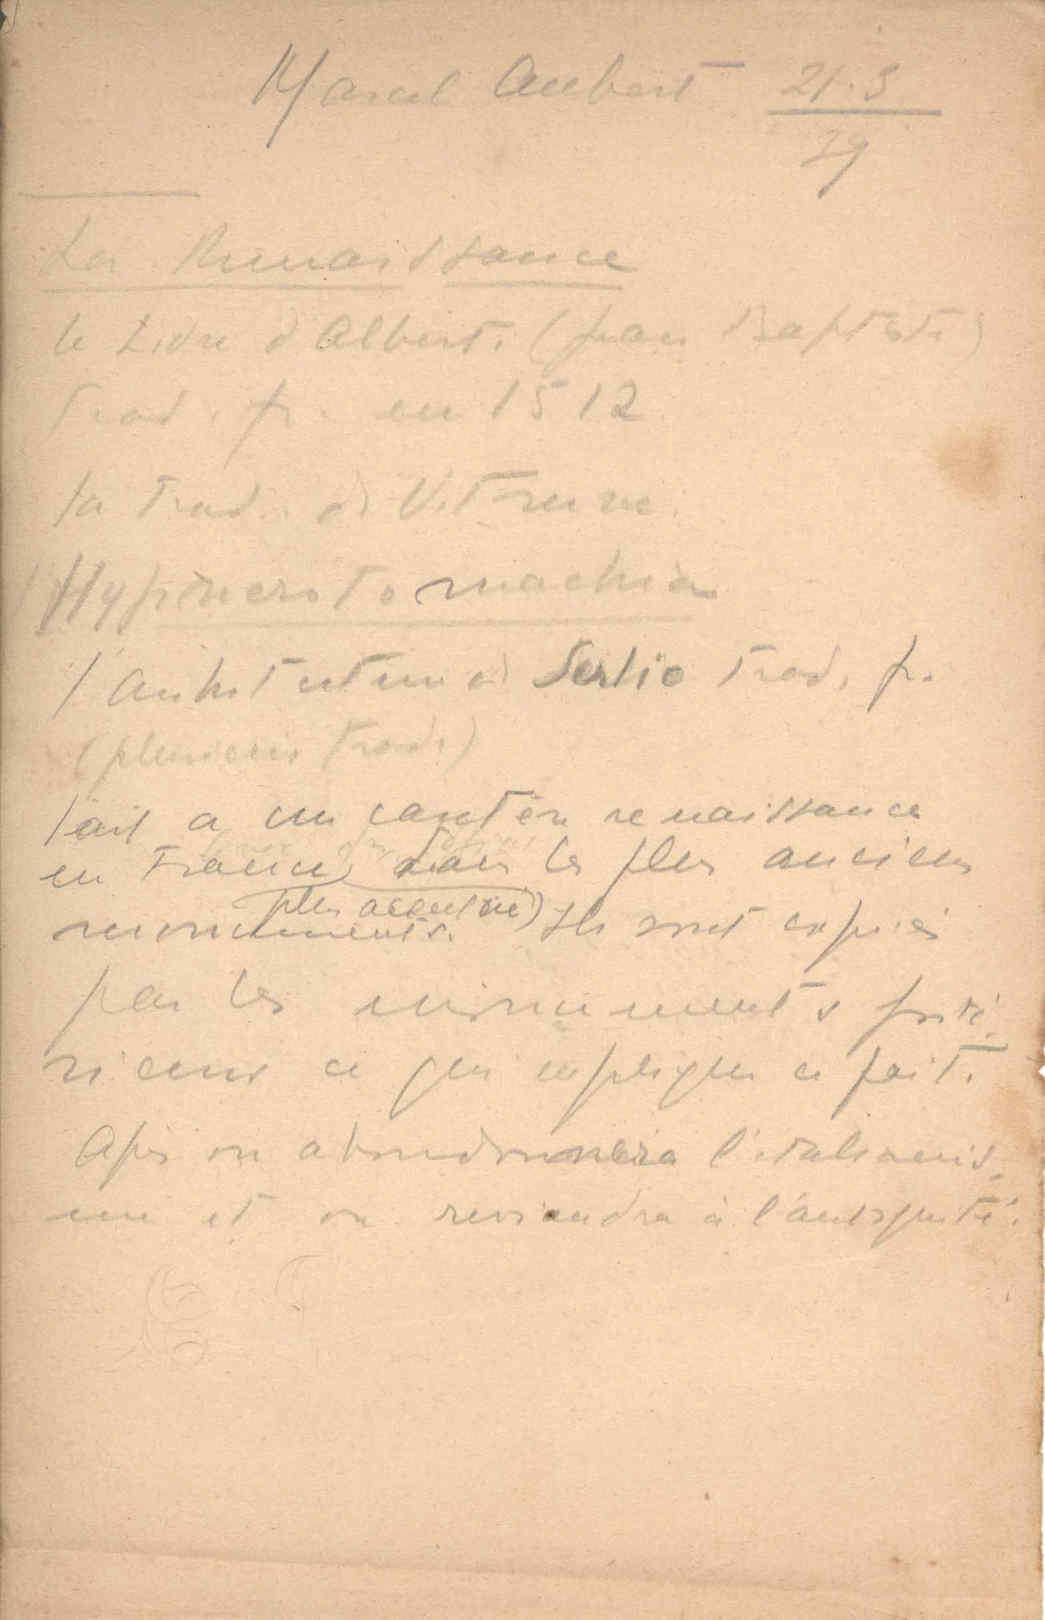 Marcel Aubert 21.3
29
La Renaissance
le Livre d'Alberti (Jean Baptiste)
Trad. fr. en 1512
la Trad. de Vitruve
Hypnerotomachia
l'Architecture de Serlio trad. fr.
(plusieurs trad.)
l'art a un caractère renaissance
en France dans les plus anciens
(plus accentué)
monuments. Ils sont copiés
par les monuments posté-
rieurs ce qui explique ce fait.
Après on abandonnera l'italianis-
me et on reviendra à l'antiquité.